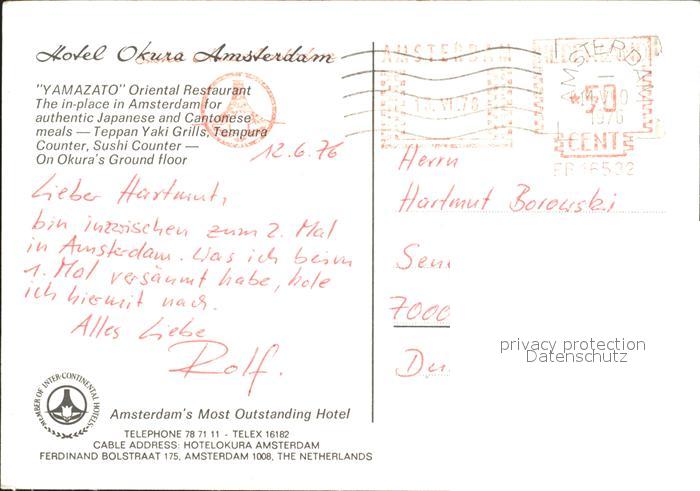 Hotel Okura Amsterdam
"YAMAZATO" Oriental Restaurant
The in-place in Amsterdam for
authentic Japanese and Cantonese
meals — Teppan Yaki Grills, Tempura
Counter, Sushi Counter —
On Okura's Ground floor
12.6.76
Lieber Hartmut,
bin inzwischen zum 2. Mal
in Amsterdam. Was ich beim
1. Mal versäumt habe, hole
ich hiermit nach.
Alles Liebe
Rolf.
MEMBER OF INTER-CONTINENTAL HOTELS
Amsterdam's Most Outstanding Hotel
TELEPHONE 78 71 11 - TELEX 16182
CABLE ADDRESS: HOTELOKURA AMSTERDAM
FERDINAND BOLSTRAAT 175, AMSTERDAM 1008, THE NETHERLANDS
AMSTERDAM
AMSTERDAM
1976
50
CENT
Herrn
Hartmut Borowski
7000
privacy protection
Datenschutz